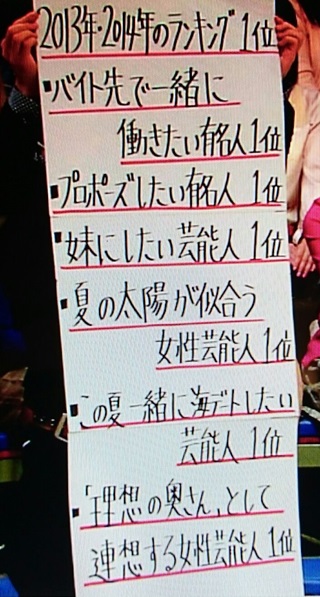 2013年・2014年のランキング1位
▪バイト先で一緒に
働きたい有名人1位
▪プロポーズしたい有名人 1位
▪妹にしたい芸能人 1位
▪夏の太陽が似合う
女性芸能人 1位
▪この夏一緒に海デートしたい
芸能人 1位
▪「理想の奥さん」として
連想する女性芸能人 1位